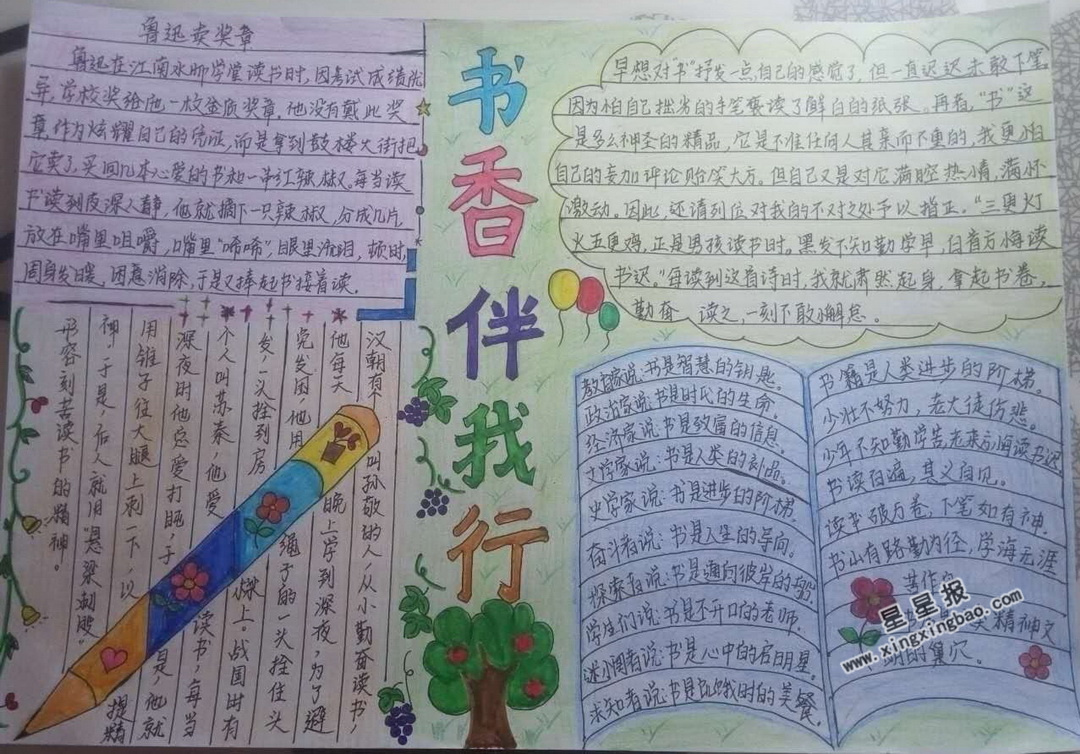 鲁迅卖奖章
鲁迅在江南水师学堂读书时,因考试成绩优
异,学校奖给他一枚金质奖章,他没有戴此奖
章作为炫耀自己的凭证,而是拿到鼓楼大街把
它卖了,买回几本心爱的书和一串红辣椒。每当读
书读到夜深人静,他就摘下一只辣椒,分成几片,
放在嘴里咀嚼,嘴里"唏唏",眼里流泪,顿时,
周身发暖,困意消除,于是又捧起书接着读。
书香伴我行
早想对"书"抒发一点自己的感觉了,但一直迟迟未敢下笔。
因为怕自己拙劣的手笔亵读了鲜白的纸张。再者,"书"这
是多么神圣的精品,它是不准任何人其亲而不重的,我更怕
自己的妄加评论贻笑大方。但自己又是对它满腔热情,满怀
激动。因此,还请到位对我的不对之处予以指正。"三更灯
火五更鸡,正是男孩读书时。黑发不知勤学早,白首方悔读
书迟。"每读到这首诗时,我就肃然起身,拿起书卷,
勤奋 读之,一刻不敢懈怠。
汉朝有个 叫孙敬的人,从小勤奋读书,
他每天 晚上学到深夜,为了避
免发困,他用 绳子的一头拴住头
发,一头拴到房 梁上。战国时有
个人叫苏秦,他爱 读书,每当
深夜时他总爱打盹,于 是,他就
用锥子往大腿上刺一下,以 提精
神,于是,后人就用"悬梁刺股"
形容刻苦读书的精神。
教育家说:书是智慧的钥匙。
政治家说:书是时代的生命。
经济家说:书是致富的信息。
文学家说:书是人类的补品。
史学家说:书是进步的阶梯。
奋斗者说:书是人生的导向。
探索者说:书是通向彼岸的船。
学生们说:书是不开口的老师。
迷惘者说:书是心中的启明星。
求知者说:书是饥饿时的美餐。
书籍是人类进步的阶梯。
少壮不努力,老大徒伤悲。
少年不知勤学苦,老来方悔读书迟
书读百遍,其义自见。
读书破万卷,下笔如有神。
书山有路勤为径,学海无涯
苦作舟
精神文
明的巢穴。
星星报
www.xingxingbao.com